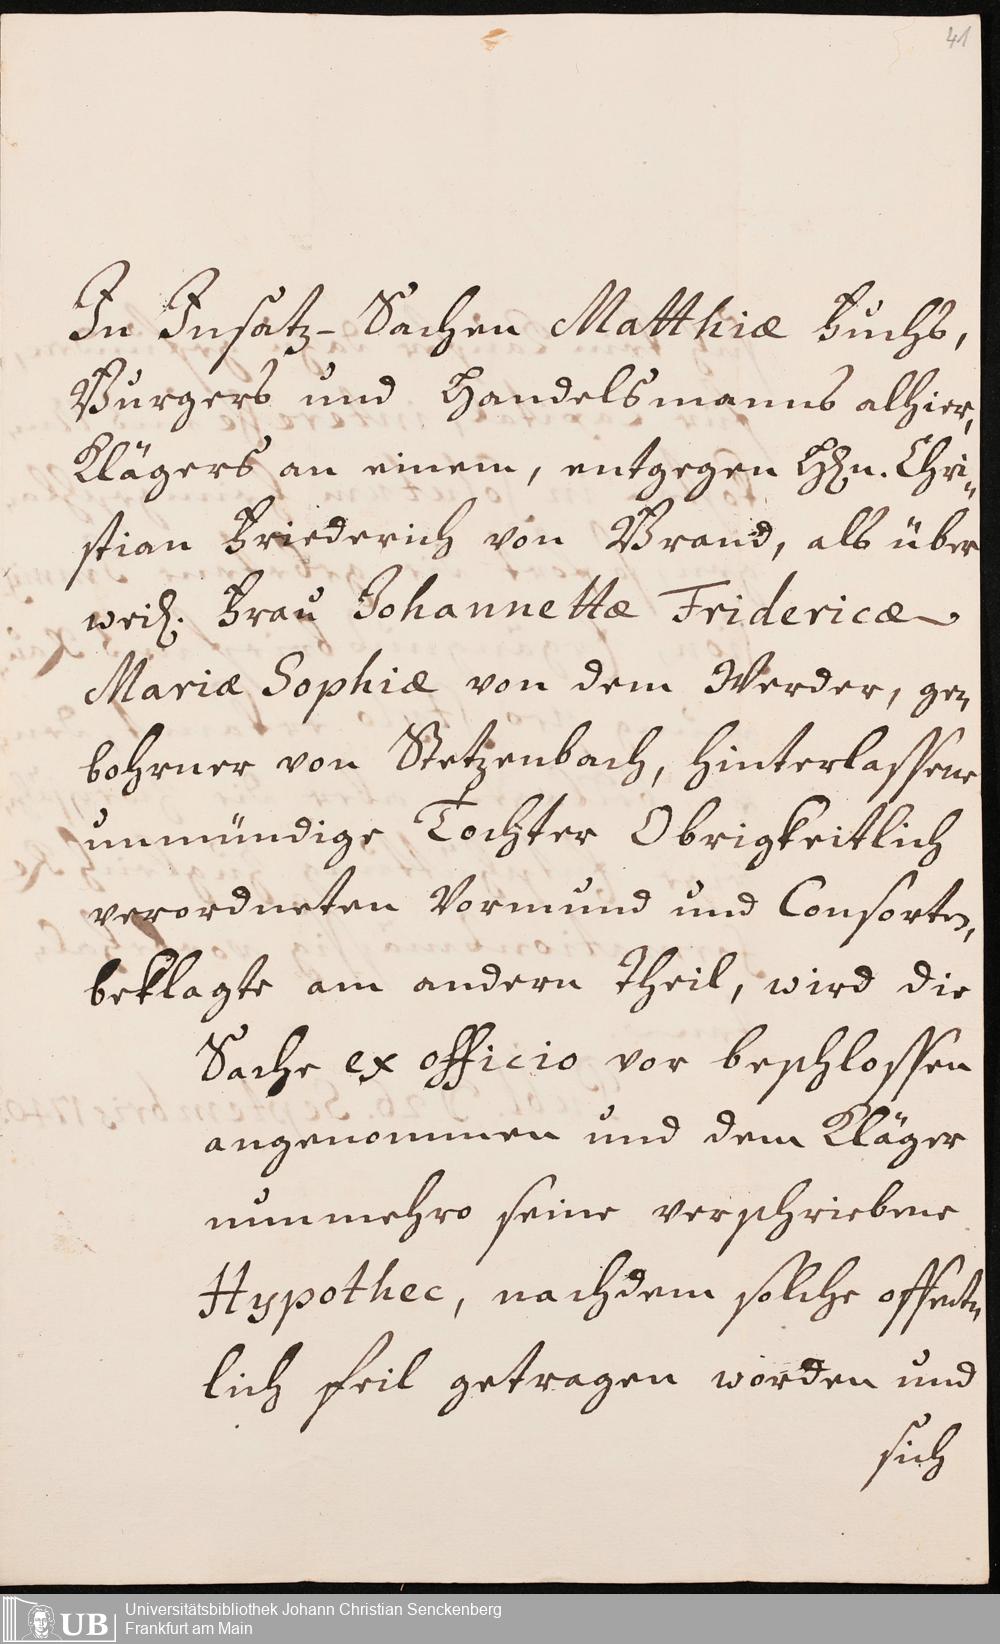 41
In Insatz-Sachen Matthiæ Fuchs,
Burgers und Handelsmanns alhier,
Klägers an einem, entgegen Hrn. Chri„
stian Friederich von Brand, als über
weil. Frau Johannettæ Fridericæ
Mariæ Sophiæ von dem Werder, ge„
bohrner von Stetzenbach, hinterlassene
unmündige Tochter Obrigkeitlich
verordneten Vormund und Consorten,
beklagte am andern Theil, wird die
Sache ex officio vor beschlossen
angenommen und dem Kläger
nunmehro seine verschriebene
Hypothec, nachdem solche offent„
lich feil getragen worden und
sich
UB
Universitätsbibliothek Johann Christian Senckenberg
Frankfurt am Main